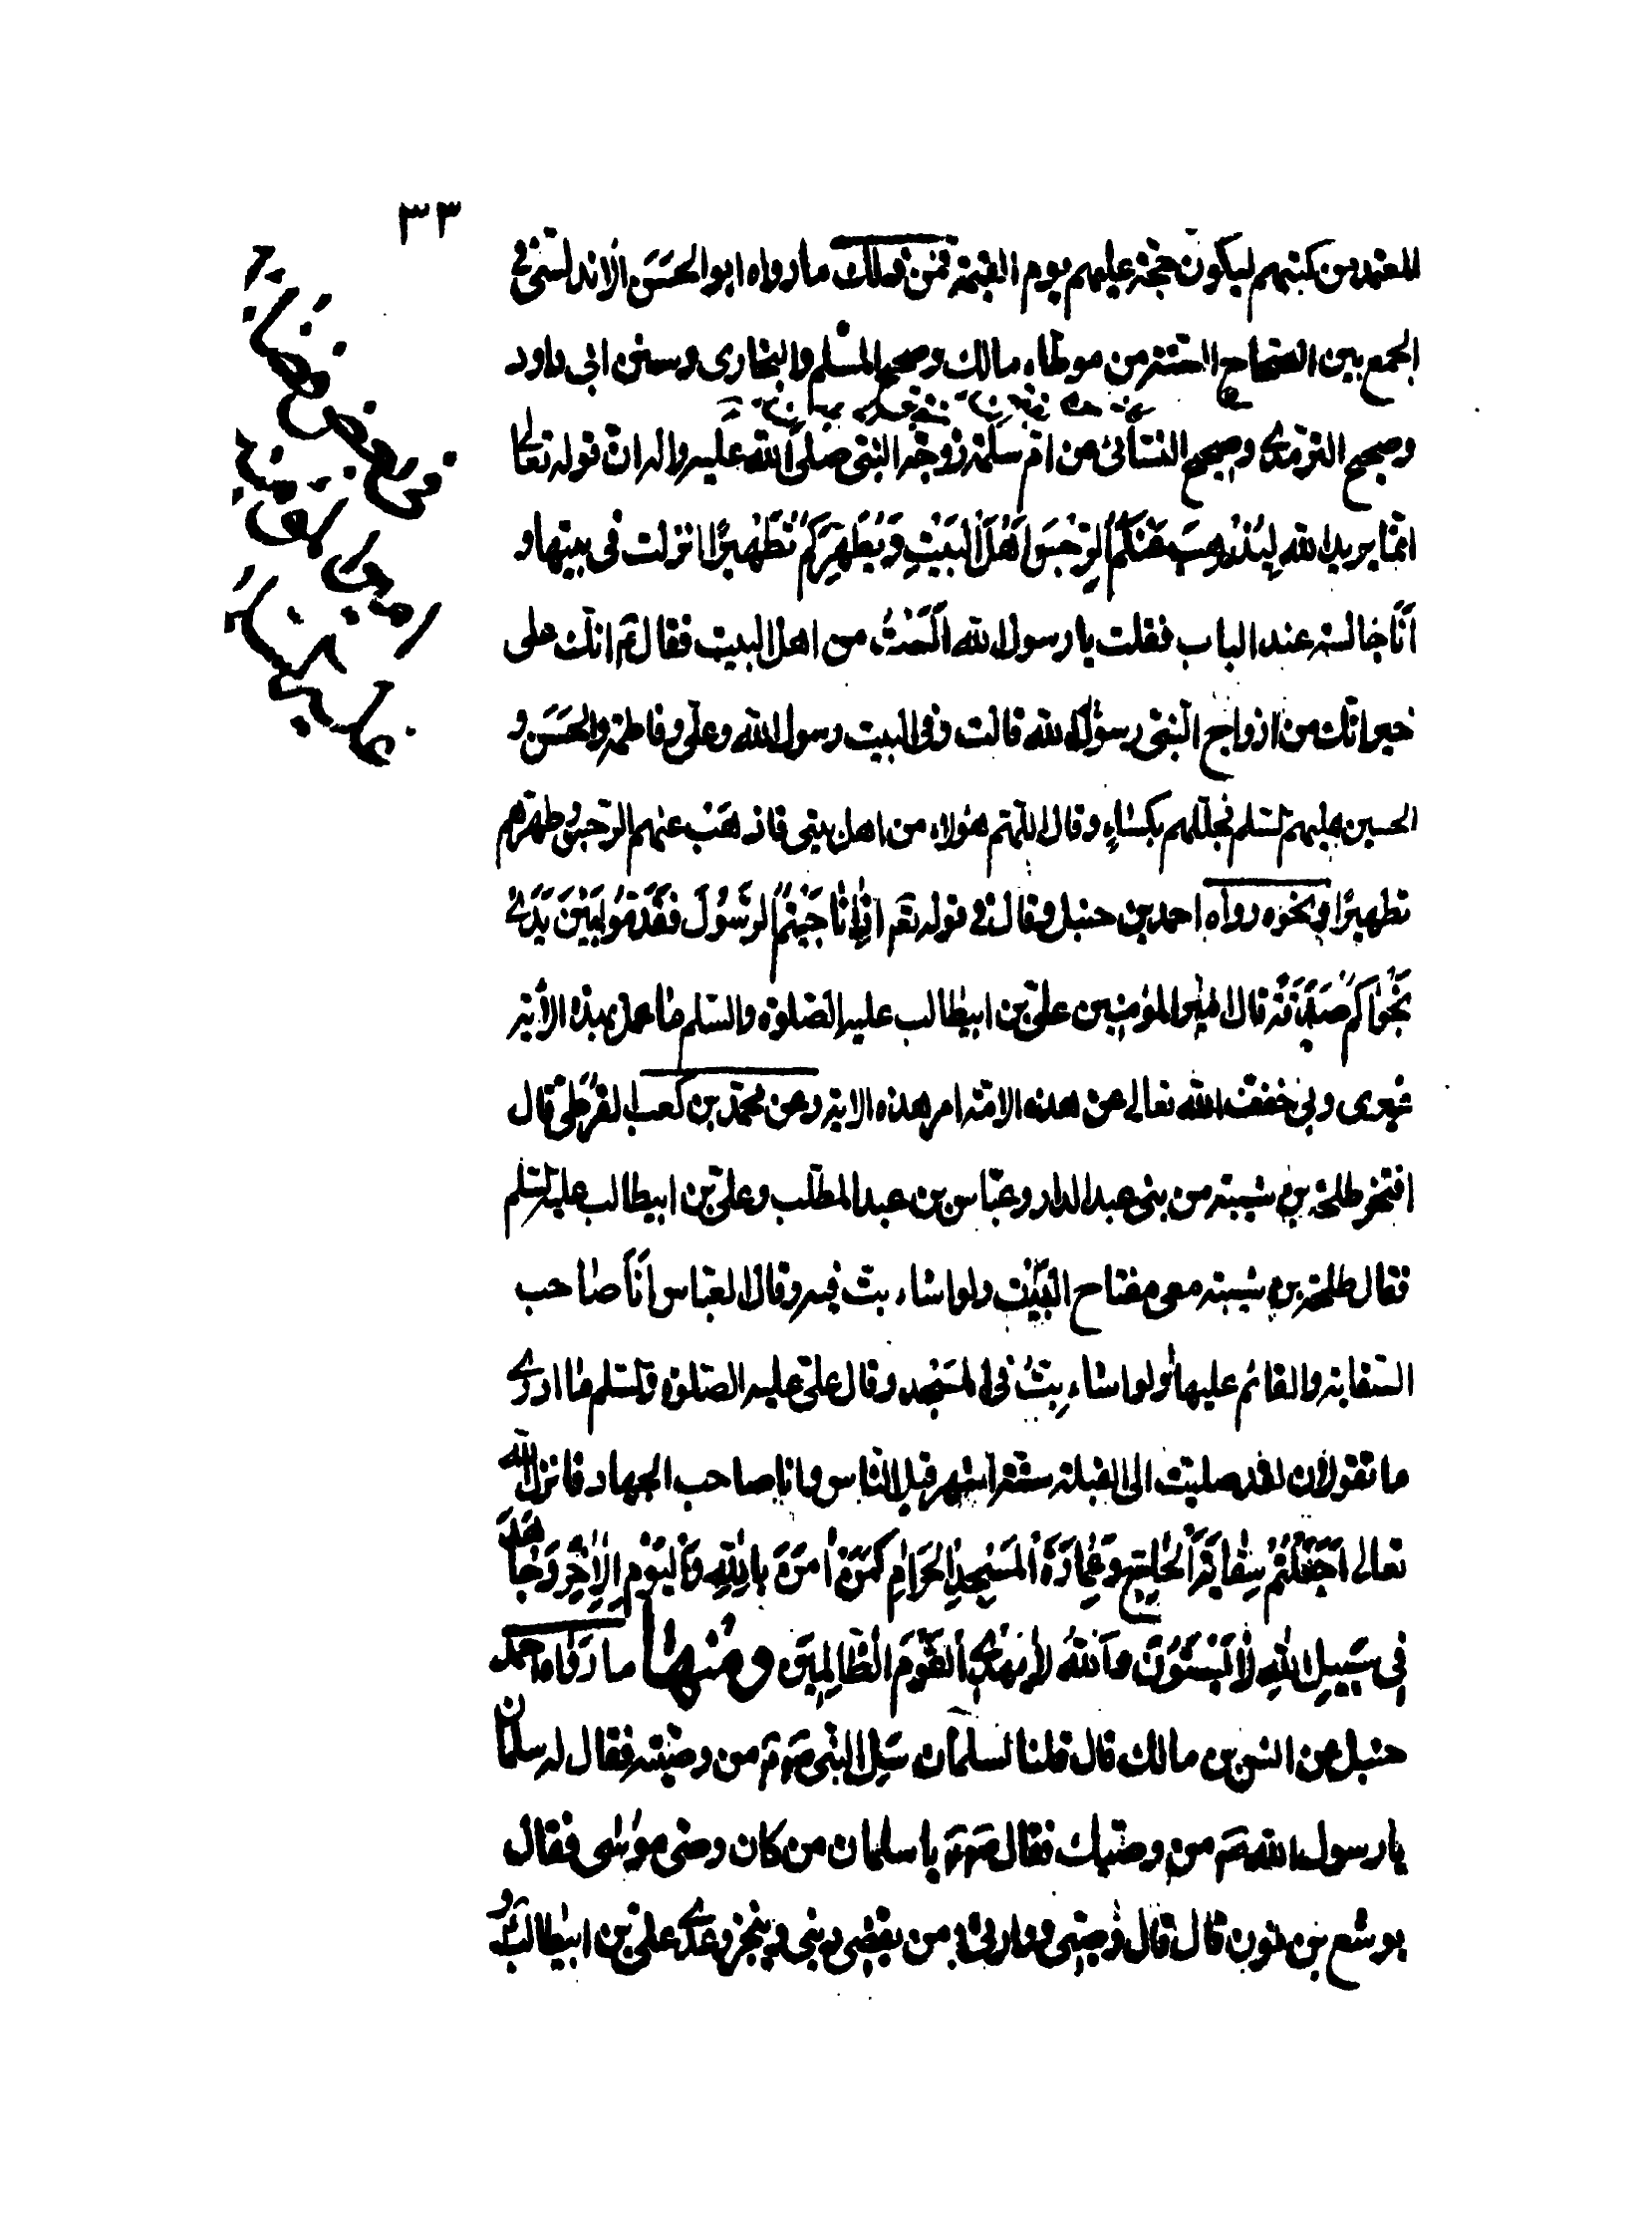 ٣٣
المعتمد من كتبهم ليكون حجة عليهم يوم القيمة فمن ذلك ما رواه ابو الحسن الاندلسى فى
الجمع بين الصحاح الستة من موطاء مالك وصحيح المسلم والبخارى وسنن ابى داود
وصحيح الترمذى وصحيح النسائى عن ام سلمة زوجة النبى صلى الله عليه واله ان قوله تعالى
انما يريد الله لِيُذْهِبَ عَنْكُمُ الرِّجْسَ اَهْلَ الْبَيْتِ وَيُطَهِّرَكُمْ تَطْهيرًا نزلت فى بيتها و
اَنَا جالسة عند الباب فقلت يا رسول الله اَلَسْتُ من اهل البيت فقال ع انك على
خير انك من ازواج النبى رسول الله قالت وفى البيت رسول الله وعلى وفاطمة والحسن و
الحسين عليهم السلم فجللهم بكساءٍ وقال اللهم هؤلاء من اهل بيتى فاذهب عنهم الرجس وطهرهم
تطهيرًا ونحوه رواه احمد بن حنبل وقال فى قوله تع اذا نَاجَيْتُمُ الرَّسُولَ فَقَدِّمُوا بَيْنَ يَدَىْ
نَجْوٰاكُمْ صَدَقَةً قال امير المؤمنين على بن ابيطالب عليه الصلوة والسلم ما عمل بهذه الاية
غيرى وبى خفف الله تعالى عن هذه الامة امر هذه الاية وعن محمد بن كعب القرظى قال
افتخر طلحة بن شيبة من بنى عبد الدار وعباس بن عبد المطلب وعلى بن ابيطالب عليه السلم
فقال طلحة بن شيبة معى مفتاح البيت ولو اشاء بت فيه وقال العباس اَنَا صاحب
السقاية والقائم عليها ولو اشاء بتُّ فى المسجد وقال على عليه الصلوة والسلم ما ادرى
ما تقولان لقد صليت الى القبلة ستة اشهر قبل الناس وانا صاحب الجهاد فانزل الله
تعالى اَجَعَلْتُمْ سِقٰايَةَ الْحٰاجِّ وَعِمٰارَةَ الْمَسْجِدِ الْحَرٰامِ كَمَنْ اٰمَنَ بِاللّٰهِ وَالْيَوْمِ الْاٰخِرِ وَجٰاهَدَ
فى سَبيلِ اللّٰهِ لٰا يَسْتَوُونَ وَاللّٰهُ لٰا يَهْدِى الْقَوْمَ الظّٰالِمينَ ومنها ما رواه احمد
حنبل عن انس بن مالك قال قلنا لسلمان سَلِ النبى ص من وصيته فقال له سلمان
يا رسول الله ص من وصيك فقال ص يا سلمان من كان وصى موسى فقال
يوشع بن نون قال قال وصيى ووارثى من يقضى دينى وينجز وعدى على بن ابيطالب و